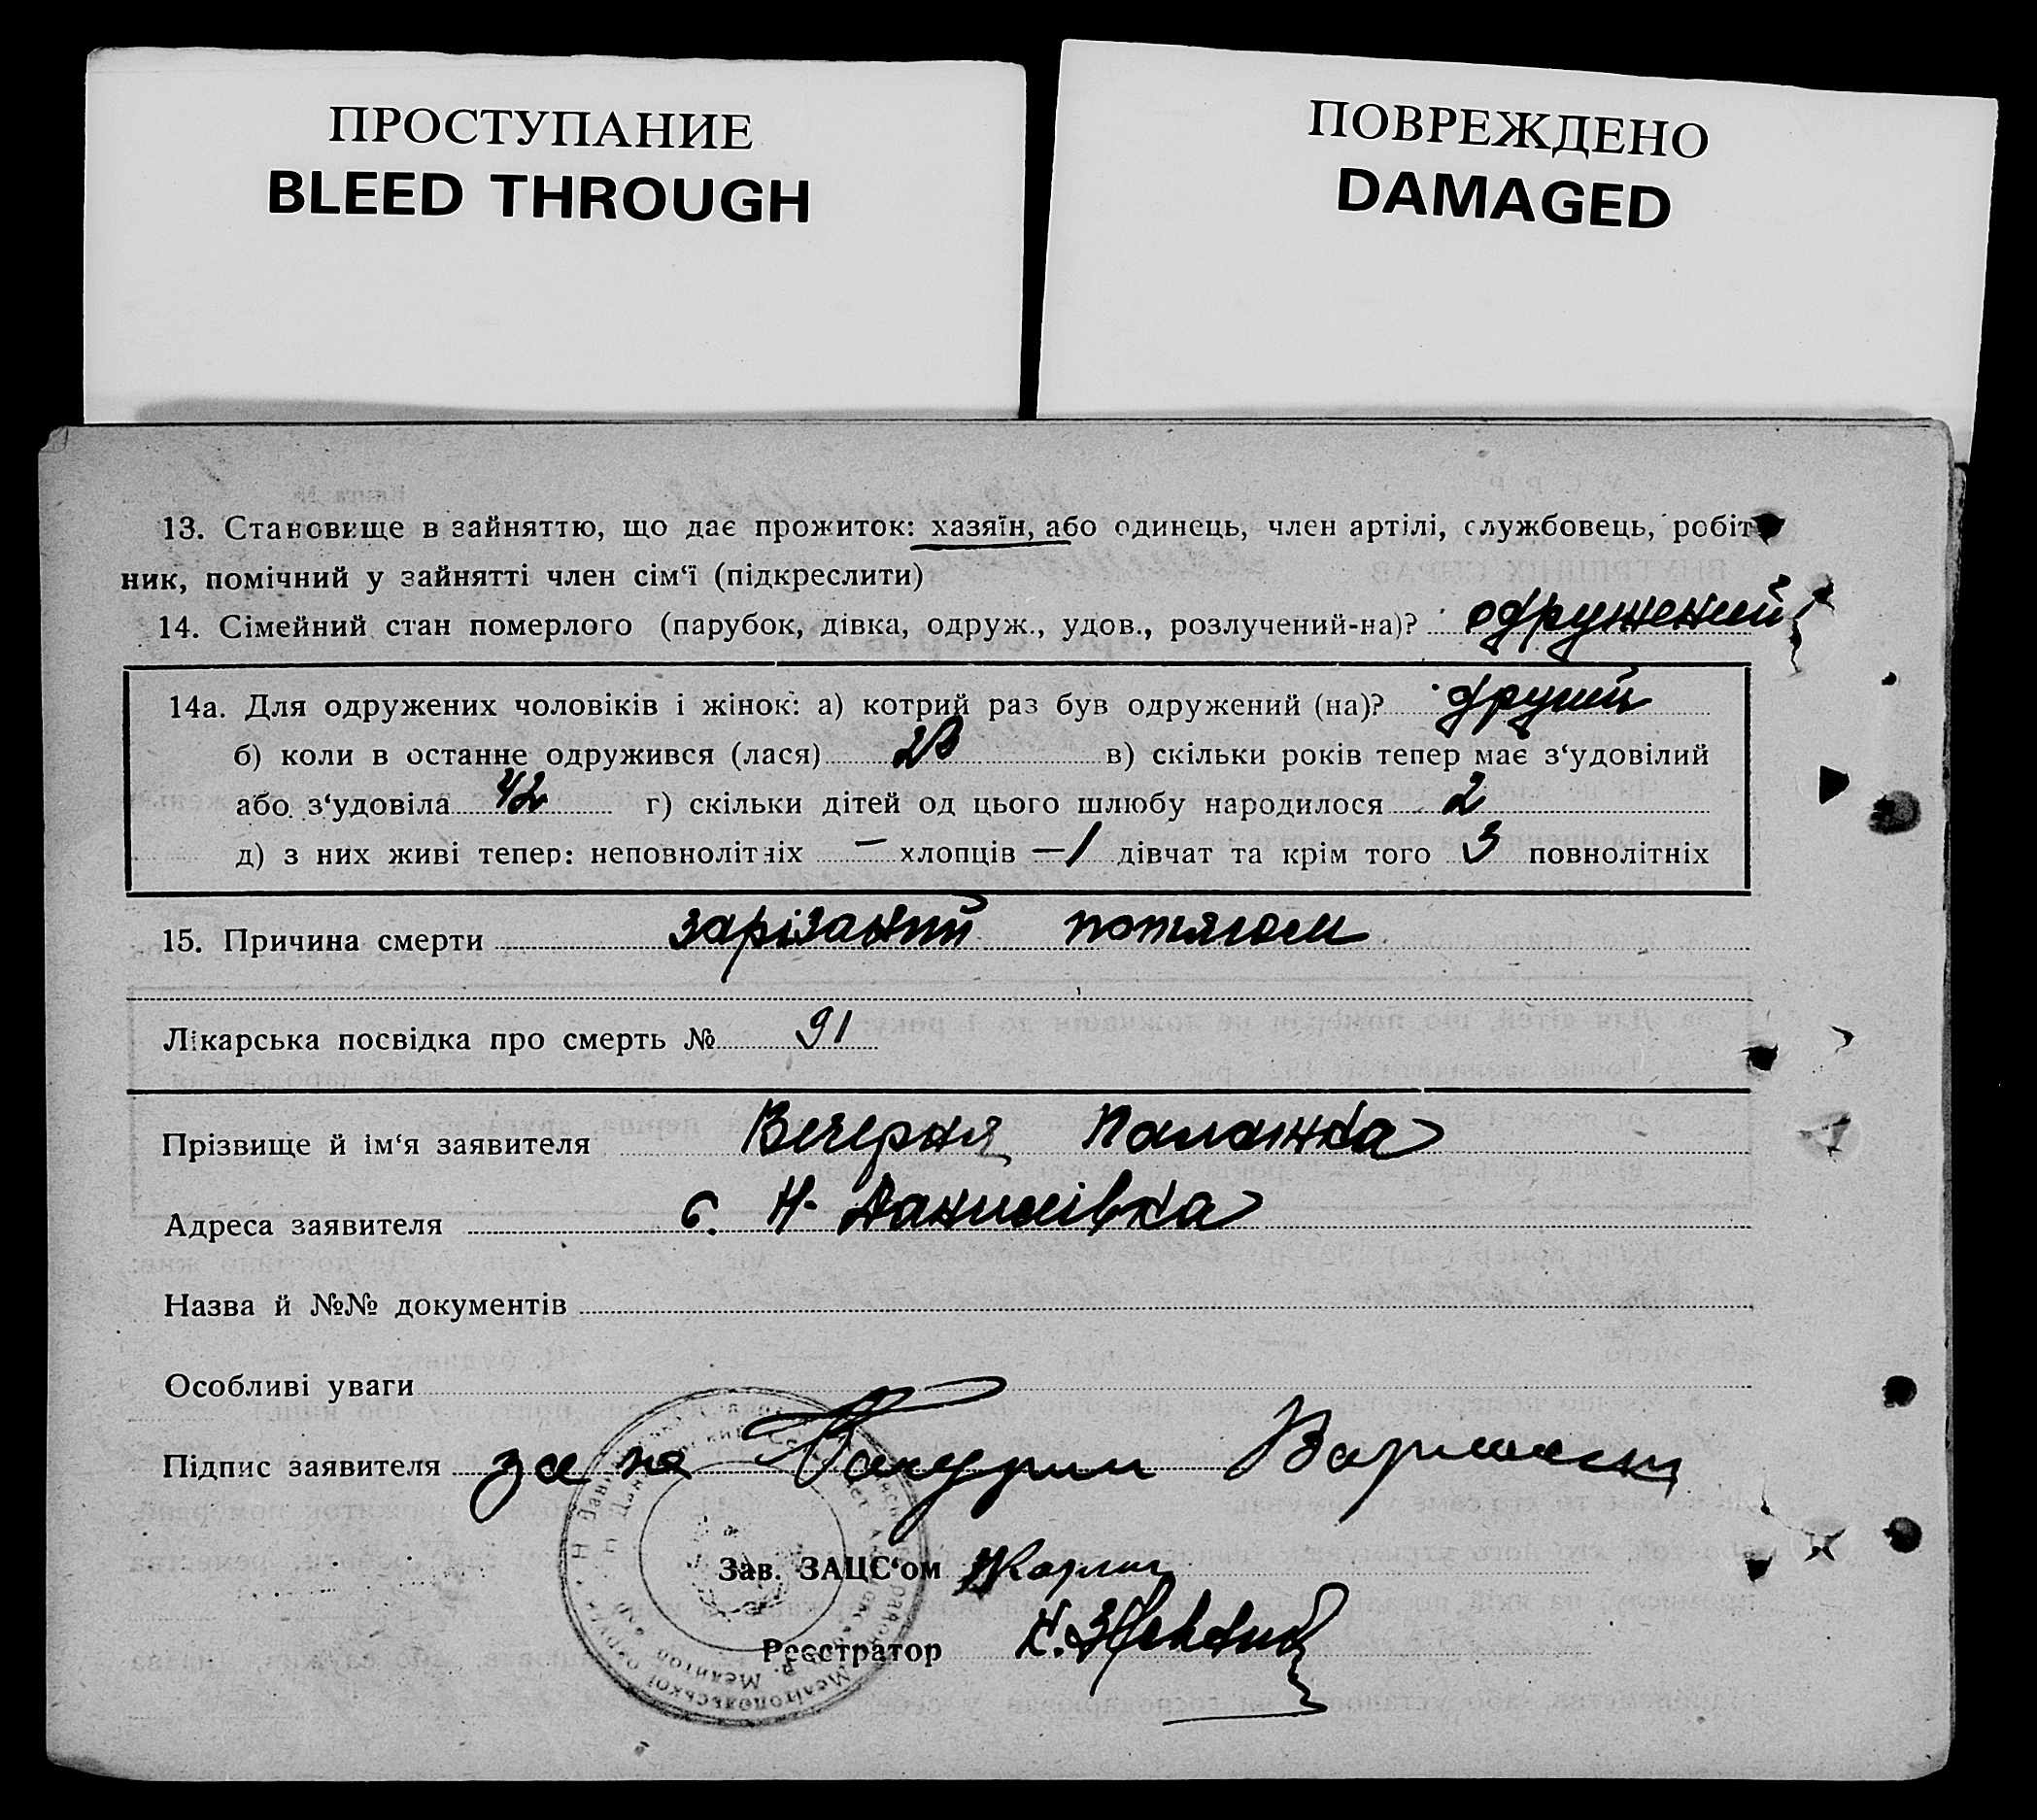 ПРОСТУПАНИЕ
BLEED THROUGH
ПОВРЕЖДЕНО
DAMAGED
13. Становище в зайняттю, що дає прожиток: хазяїн, або одинець, член артілі, службовець, робіт-
ник, помічний у зайнятті член сім‘ї (підкреслити)
14. Сімейний стан померлого (парубок, дівка, одруж., удов., розлучений-на)? одружений
14а. Для одружених чоловіків і жінок: а) котрий раз був одружений (на)? другий
б) коли в останне одружився (лася) в) скільки років тепер має з‘удовілий
або з‘удовіла 42 г) скільки дітей од цього шлюбу народилося 2
д) з них живі тепер: неповнолітніх — хлопців — 1 дівчат та крім того 3 повнолітніх
15. Причина смерти зарізаний потягом
Лікарська посвідка про смерть № 91
Прізвище й ім‘я заявителя Вечерня Палажка
Адреса заявителя с. Н. Данилівка
Назва й №№ документів
Особливі уваги
Підпис заявителя за не
Зав. ЗАЦС‘ом
Реєстратор